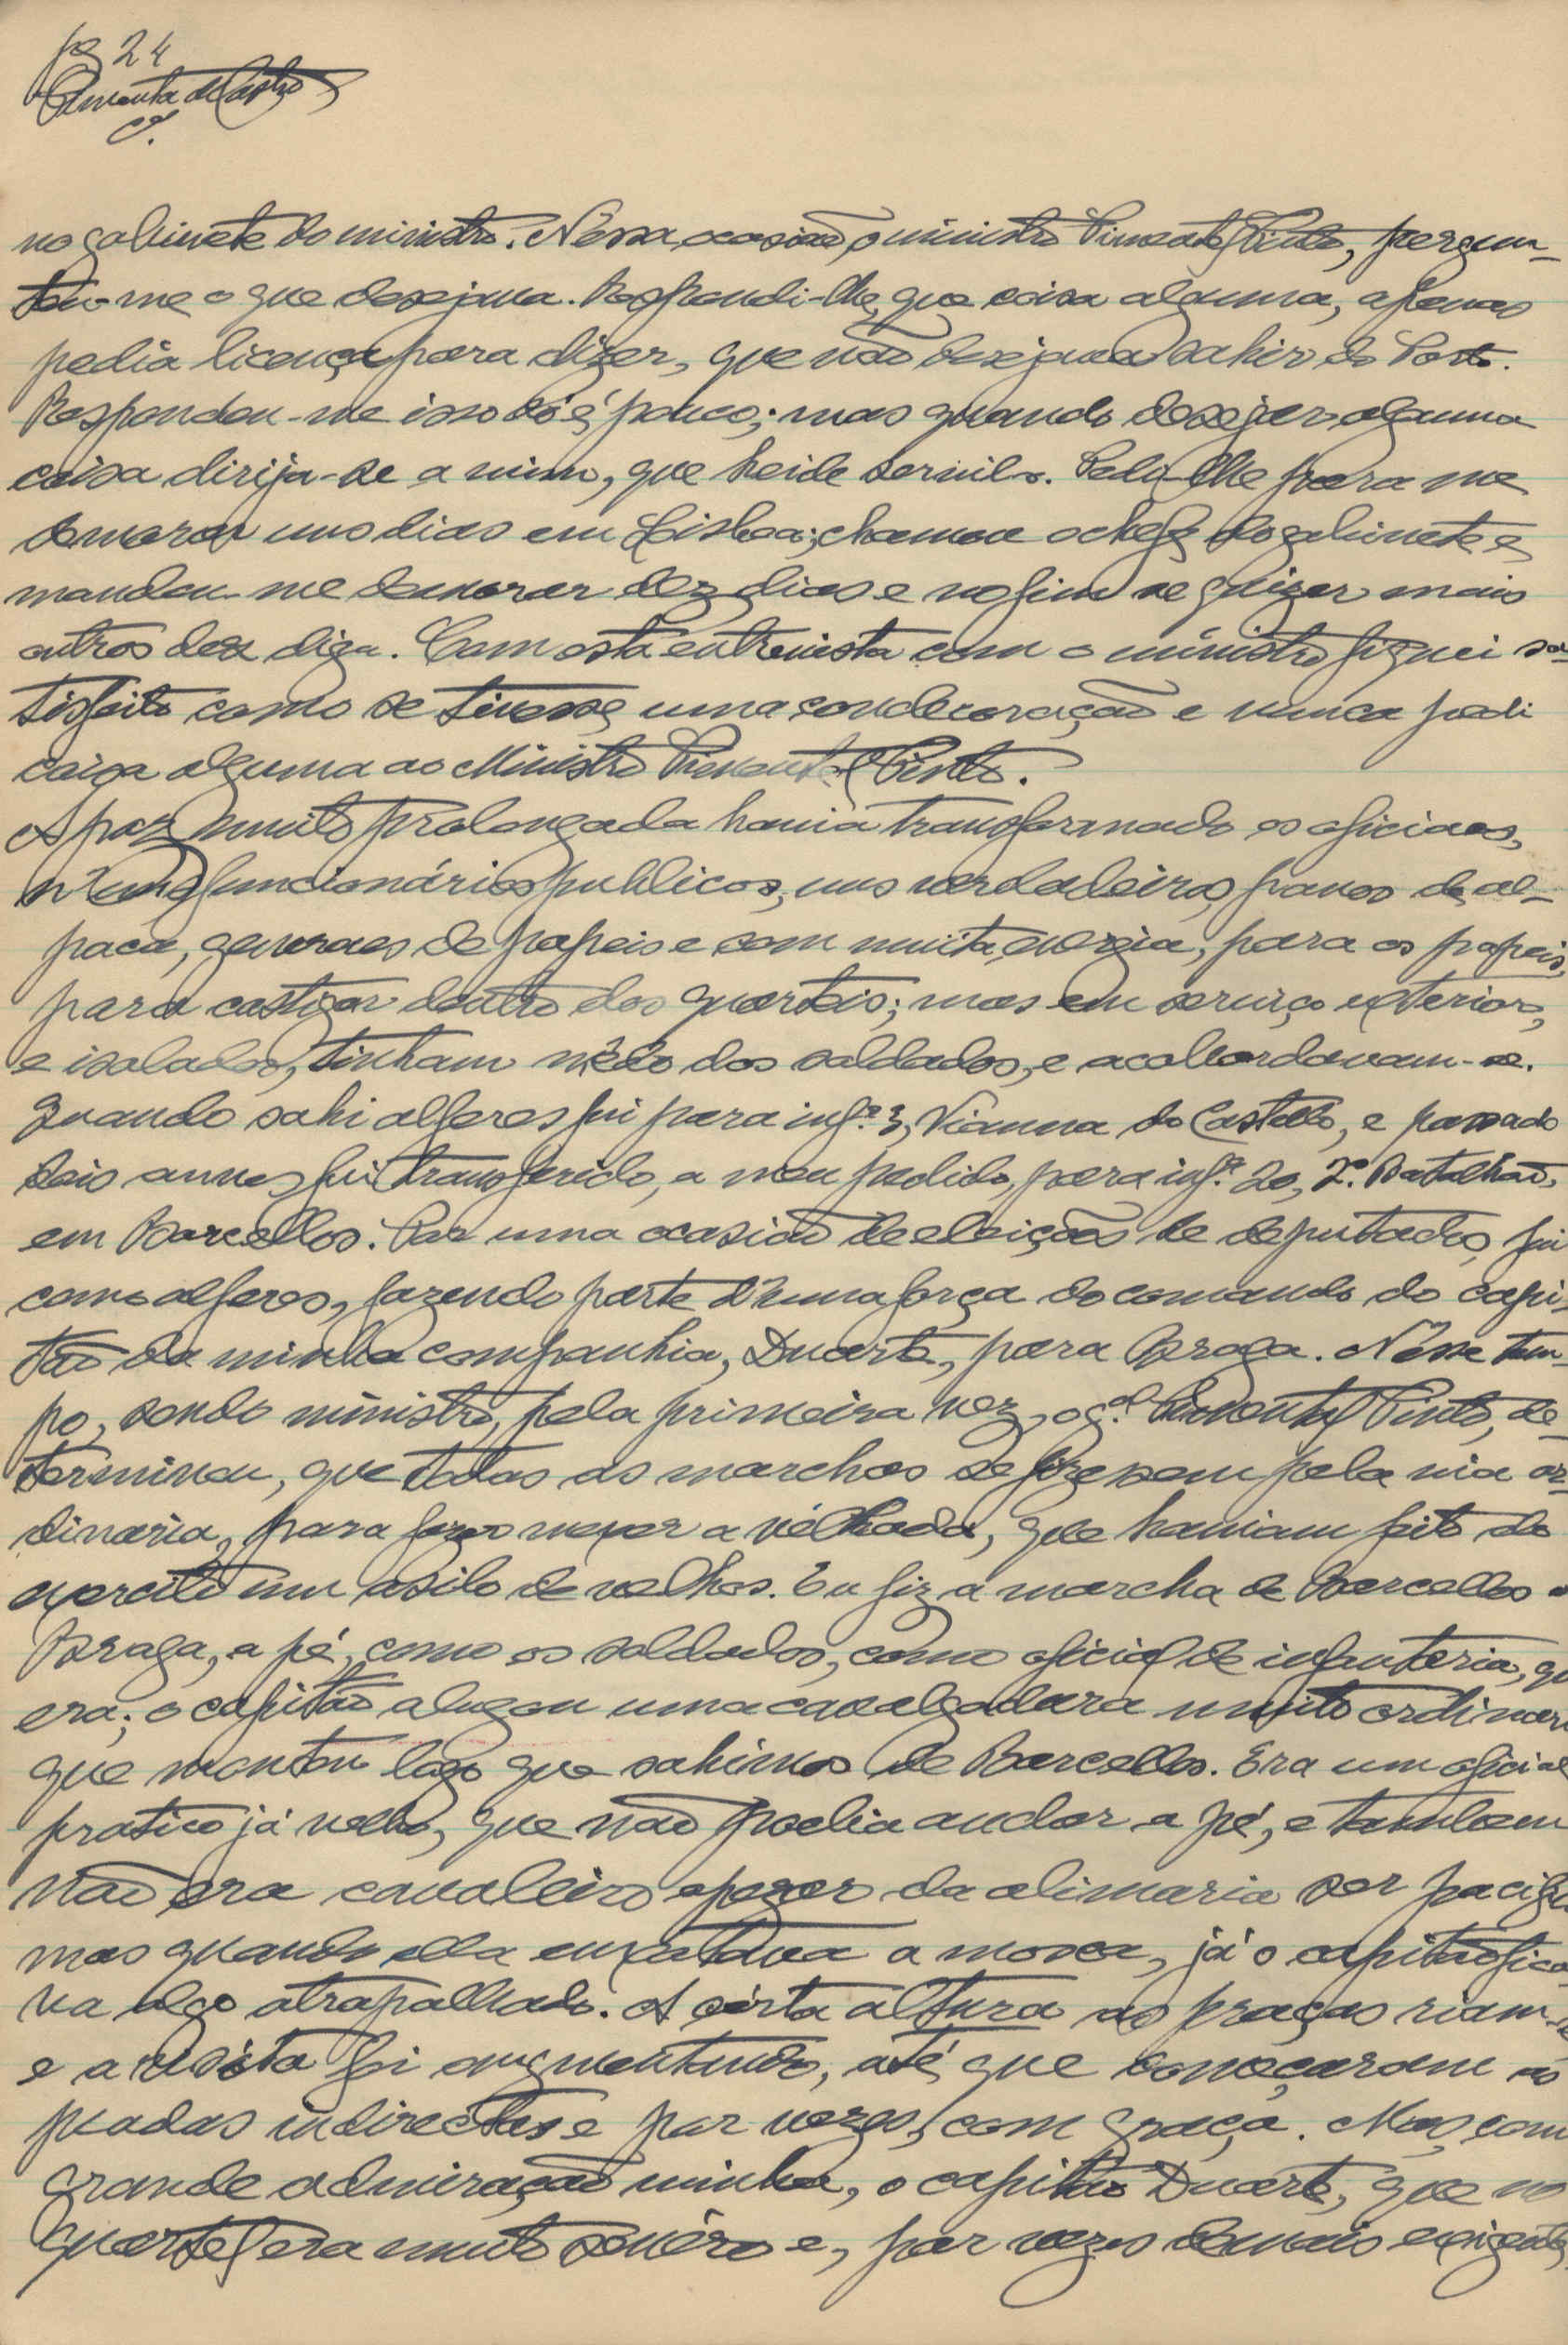 pg 24
Pimenta de Castro
no gabinete do ministro. Néssa ocasião o ministro Pimentel Pinto, pergun-
tou-me o que desejava. Respondi-lhe, que coisa alguma, apenas
pedia licença para dizer, que não desejava sahir do Porto.
Respondeu-me isso só é pouco; mas quando desejar alguma
coisa dirija-se a mim, que heide servilo. Pedi-lhe para me
demorar uns dias em Lisboa; chamou o chefe do gabinete e
mandou-me demorar dez dias e no fim se quizer mais
outros dez diga. Com esta entrevista com o ministro fiquei sa-
tisfeito como se tivesse uma condecoração e nunca pedi
coisa alguma ao Ministro Pimentel Pinto.
A paz muito prolongada havia transformado os oficiaes,
n'uns funcionários publicos, uns verdadeiros panos de al-
paca, generaes de papeis e com muita energia, para os papeis,
para castigar dentro dos quarteis; mas em serviço exterior,
e isolados, tinham mêdo dos soldados, e acobardavam-se.
Quando sahi alferes fui para infª 3, Vianna do Castello, e passado
dois annos fui transferido, a meu pedido, para infª 20, 2º. Batalhão,
em Barcellos. Por uma ocasião de eleições de deputados, fui
como alferes, fazendo parte d'uma força do comando do capi-
tão da minha companhia, Duarte, para Braga. Nésse tem-
po, sendo ministro, pela primeira vez, o gal Pimentel Pinto, de-
terminou, que todas as marchas se fizessem pela via or-
dinaria, para fazer mexer a vélhada, que haviam feito do
exercito um asilo de velhos. Eu fiz a marcha de Barcellos a
Braga, a pé, como os soldados, como oficial de infanteria, que
era; o capitão alugou uma cavalgadura muito ordinaria
que montou logo que sahimos de Barcellos. Era um oficial
pratico já velho, que não podia andar a pé, e tambem
não era cavaleiro apezar da alimaria ser pacifica
mas quando ella enxotava a mosca, já o capitão fica-
va algo atrapalhado. A cérta altura as praças riam-se
e a risóta foi augmentando, até que começaram as
piadas indirectas e por vezes, com graça. Mas, com
grande admiração minha, o capitão Duarte, que no
quartel era muito sevéro e, por vezes demais exigente,